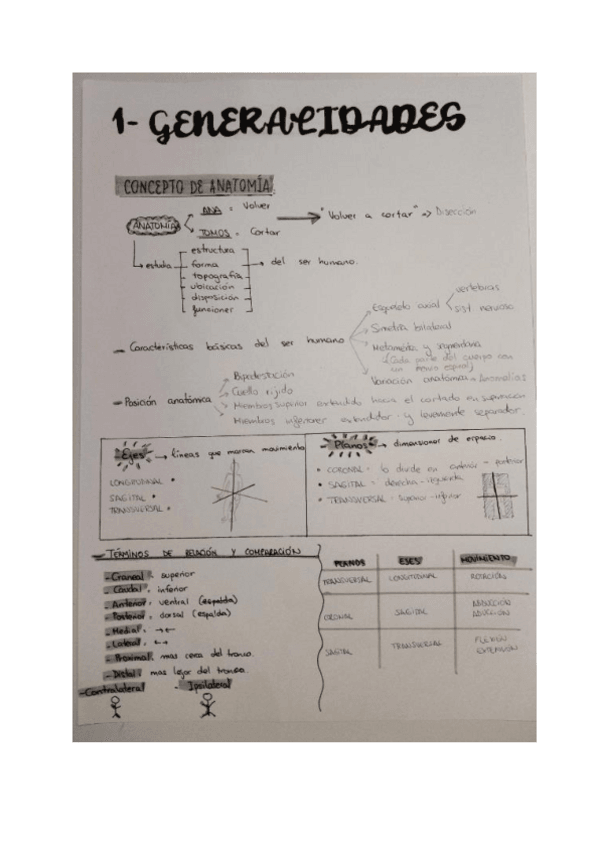 1- GENERALIDADES
CONCEPTO DE ANATOMÍA
ANATOMÍA
ANA = Volver
TOMOS = Cortar
"Volver a cortar" => Disección
estudia
estructura
forma
topografía
ubicación
disposición
funciones
del ser humano.
- Características básicas del ser humano
Esqueleto axial
vertebras
sist nervioso
Simetría bilateral
Metamería y
(Cada parte del cuerpo con
un nervio espinal)
Variación anatómica = Anomalías
- Posición anatómica
Bipedestación
Cuello rígido
Miembros superior extendido hacia el costado en supinación
Miembros inferiores extendidos y levemente separados.
Ejes → líneas que marcan movimiento
LONGITUDINAL
SAGITAL
TRANSVERSAL
Planos → dimensiones de espacio.
CORONAL = lo divide en anterior - posterior
SAGITAL = derecha - izquierda
TRANSVERSAL = superior - inferior
- TÉRMINOS DE RELACIÓN Y COMPARACIÓN
- Craneal: superior
- Caudal: inferior
- Anterior: ventral (espalda)
- Posterior: dorsal (espalda)
- Medial: →←
- Lateral: ←→
- Proximal: mas cerca del tronco.
- Distal: mas lejos del tronco.
- Contralateral - Ipsilateral
PLANOS EJES MOVIMIENTO
TRANSVERSAL LONGITUDINAL ROTACIÓN
CORONAL SAGITAL ABDUCCIÓN
ADUCCIÓN
SAGITAL TRANSVERSAL FLEXIÓN
EXTENSIÓN